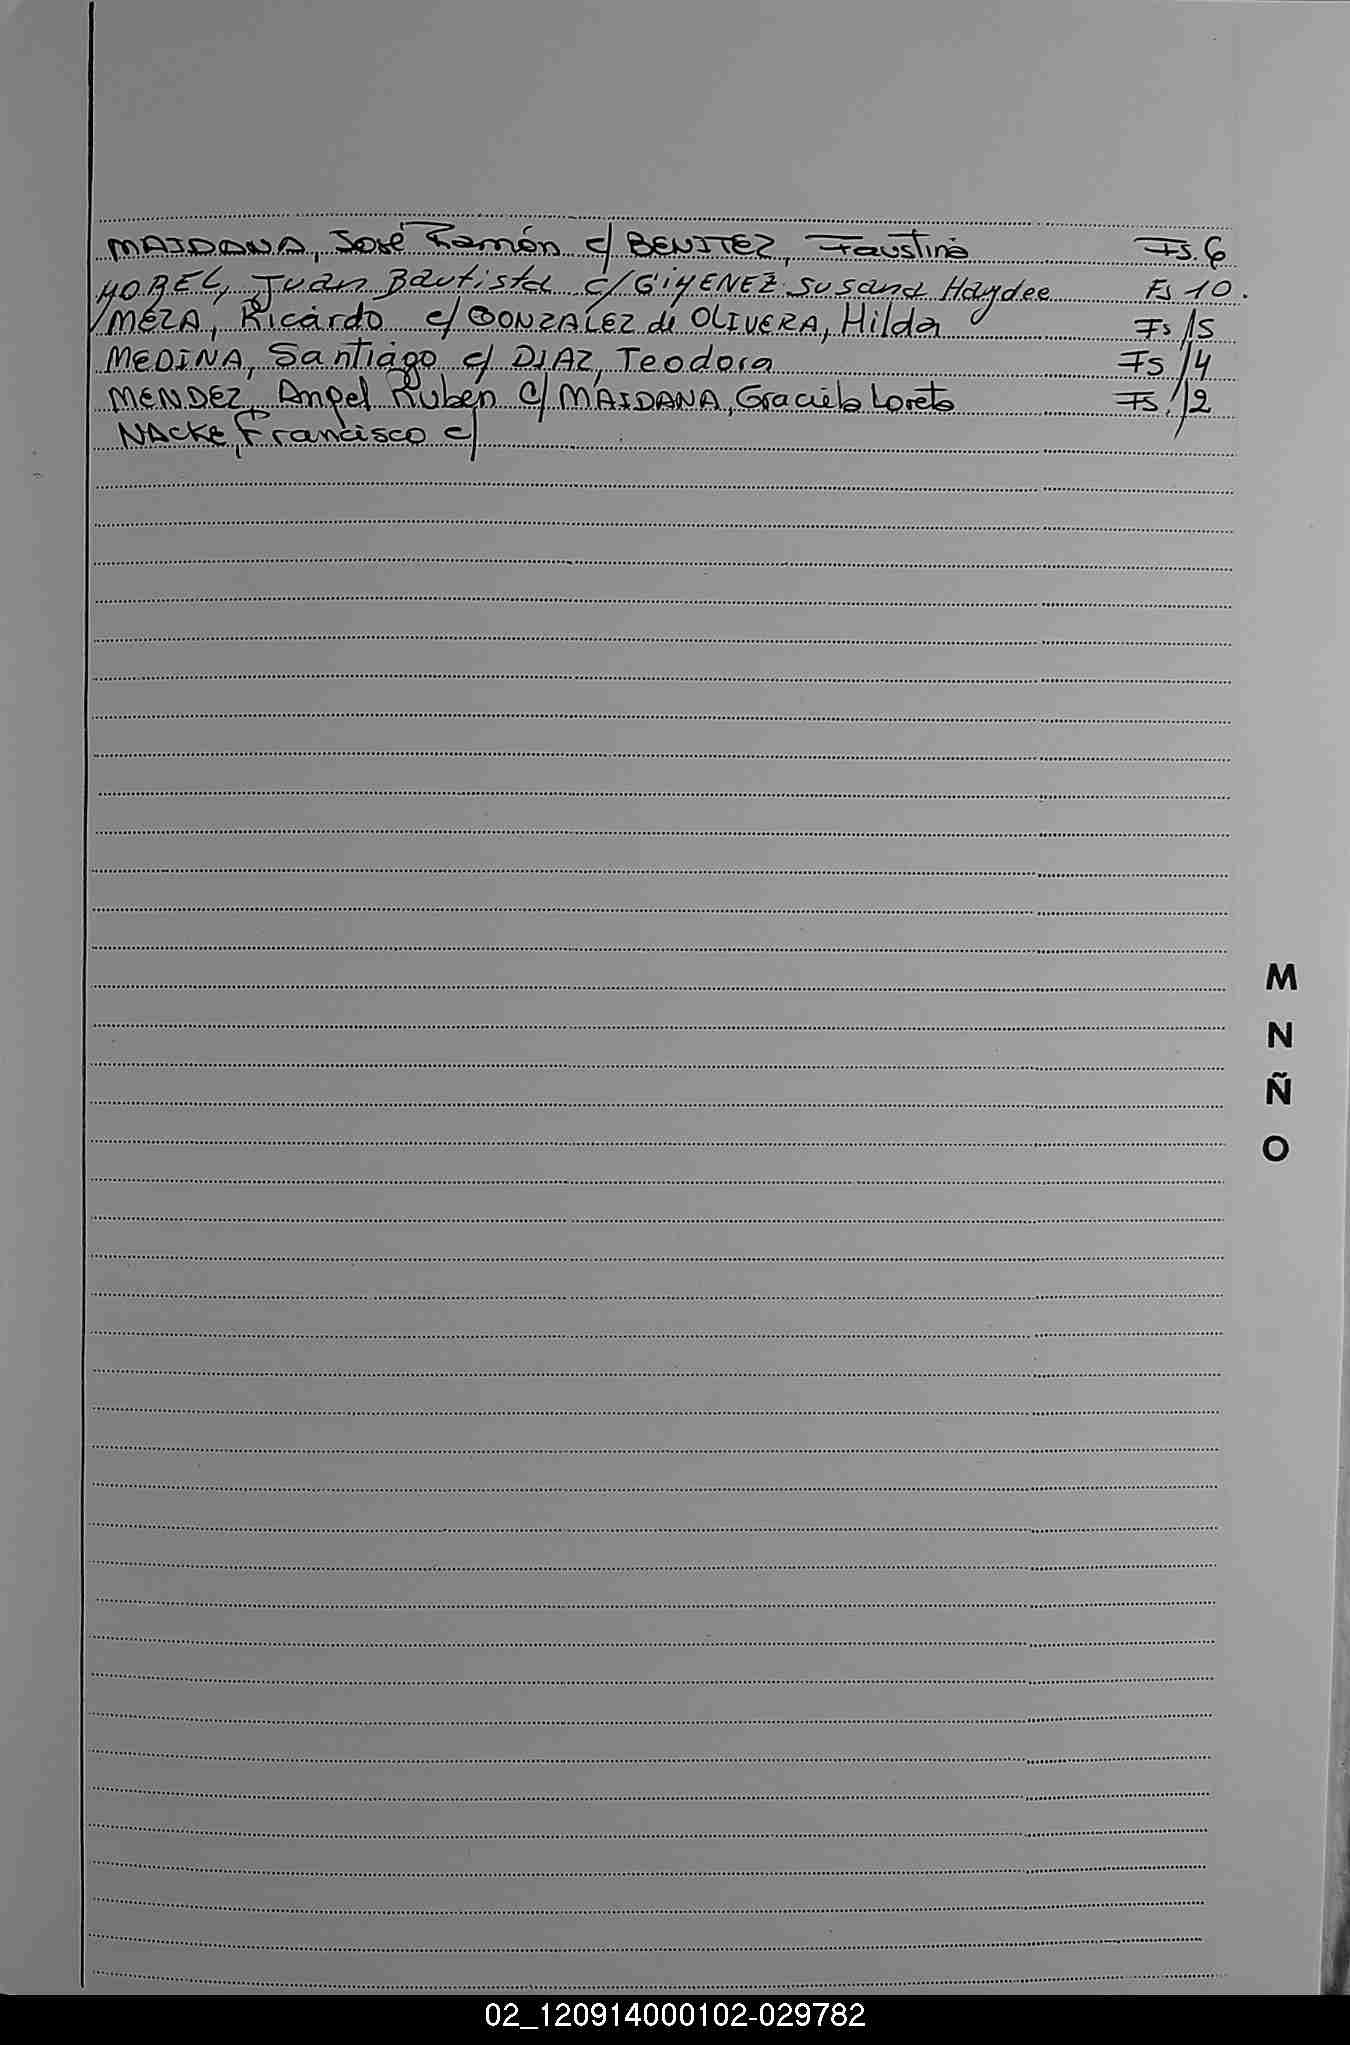 MAIDANA, José Ramón c/ BENITEZ, Faustina Fs. 6
MOREL, Juan Bautista c/ GIMENEZ Susana Haydee Fs 10.
MEZA, Ricardo c/ GONZALEZ de OLIVERA, Hilda Fs 15
MEDINA, Santiago c/ DIAZ, Teodora Fs 14
MENDEZ, Angel Rubén c/ MAIDANA, Graciela Loreto Fs. 12
NACKE, Francisco c/
M
N
Ñ
O
02_120914000102-029782